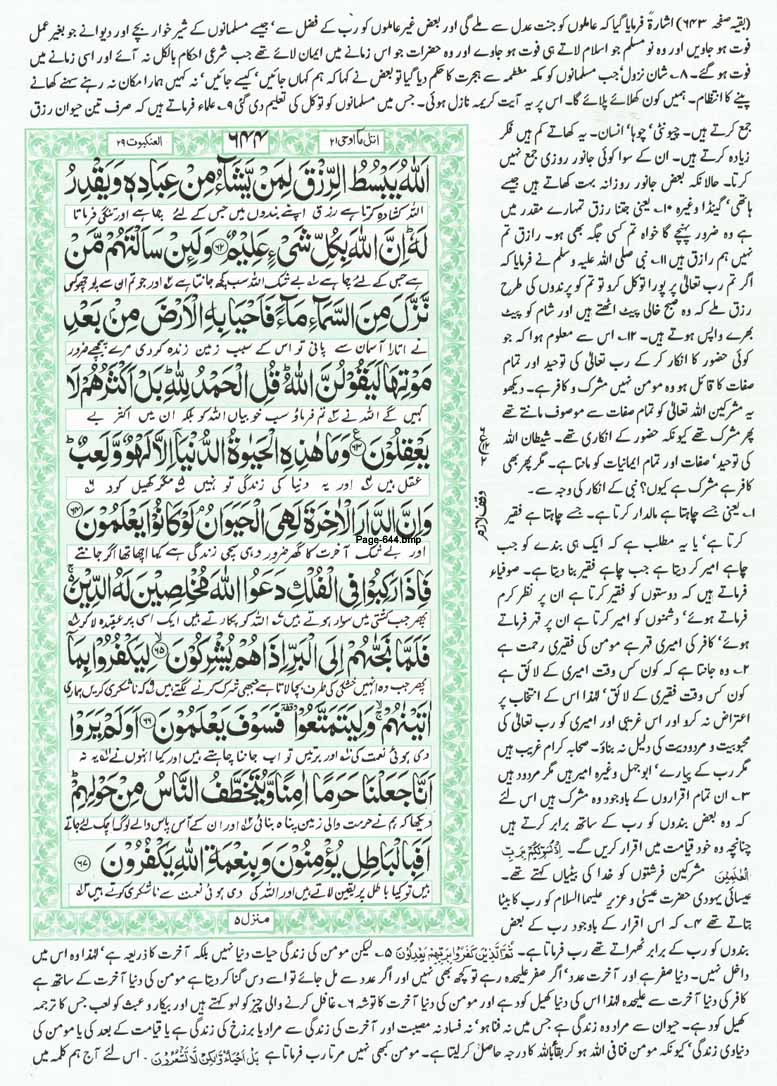 (بقیہ صفحہ ۶۴۳) اشارۃً فرمایا گیا کہ عاملوں کو جنت عدل سے ملے گی اور بعض غیر عاملوں کو رب کے فضل سے، جیسے مسلمانوں کے شیر خوار بچے اور دیوانے جو بغیر عمل
فوت ہو جاویں اور وہ نو مسلم جو اسلام لاتے ہی فوت ہو جاوے اور وہ حضرات جو اس زمانے میں ایمان لائے تھے جب شرعی احکام بالکل نہ آئے اور اسی زمانے میں
فوت ہو گئے۔ ۸۔ شان نزول: جب مسلمانوں کو مکہ معظمہ سے ہجرت کا حکم دیا گیا تو بعض نے کہا کہ ہم کہاں جائیں، کیسے جائیں، نہ کہیں ہمارا مکان نہ رہنے سہنے کھانے
پینے کا انتظام۔ ہمیں کون کھلائے پلائے گا۔ اس پر یہ آیت کریمہ نازل ہوئی۔ جس میں مسلمانوں کو توکل کی تعلیم دی گئی ۹۔ علماء فرماتے ہیں کہ صرف تین حیوان رزق
جمع کرتے ہیں۔ چیونٹی، چوہا، انسان۔ یہ کھاتے کم ہیں فکر
زیادہ کرتے ہیں۔ ان کے سوا کوئی جانور روزی جمع نہیں
کرتا۔ حالانکہ بعض جانور روزانہ بہت کھاتے ہیں جیسے
ہاتھی، گینڈا وغیرہ ۱۰۔ یعنی جتنا رزق تمہارے مقدر میں
ہے وہ ضرور پہنچے گا خواہ تم کسی جگہ بھی ہو۔ رازق تم
نہیں ہم رازق ہیں ۱۱۔ نبی صلی اللہ علیہ وسلم نے فرمایا کہ
اگر تم رب تعالیٰ پر پورا توکل کرو تو تم کو پرندوں کی طرح
رزق ملے کہ وہ صبح خالی پیٹ اٹھتے ہیں اور شام کو پیٹ
بھرے واپس ہوتے ہیں۔ ۱۲۔ اس سے معلوم ہوا کہ جو
کوئی حضور کا انکار کر کے رب تعالیٰ کی توحید اور تمام
صفات کا قائل ہو وہ مومن نہیں مشرک و کافر ہے۔ دیکھو
یہ مشرکین اللہ تعالیٰ کو تمام صفات سے موصوف مانتے تھے
پھر مشرک تھے کیونکہ حضور کے انکاری تھے۔ شیطان اللہ
کی توحید، صفات اور تمام ایمانیات کو مانتا ہے۔ مگر پھر بھی
کافر ہے مشرک ہے کیوں؟ نبی کے انکار کی وجہ سے۔
۱۔ یعنی جسے چاہتا ہے مالدار کرتا ہے۔ جسے چاہتا ہے فقیر
کرتا ہے، یا یہ مطلب ہے کہ ایک ہی بندے کو جب
چاہے امیر کر دیتا ہے جب چاہے فقیر بنا دیتا ہے۔ صوفیاء
فرماتے ہیں کہ دوستوں کو فقیر کرتا ہے ان پر نظر کرم
فرماتے ہوئے، دشمنوں کو امیر کرتا ہے ان پر قہر فرماتے
ہوئے، کافر کی امیری قہر ہے مومن کی فقیری رحمت ہے
۲۔ وہ جانتا ہے کہ کون کس وقت امیری کے لائق ہے
کون کس وقت فقیری کے لائق، لہٰذا اس کے انتخاب پر
اعتراض نہ کرو اور اس غریبی اور امیری کو رب تعالیٰ کی
محبوبیت و مردودیت کی دلیل نہ بناؤ۔ صحابہ کرام غریب ہیں
مگر رب کے پیارے، ابو جہل وغیرہ امیر ہیں مگر مردود ہیں
۳۔ ان تمام اقراروں کے باوجود وہ مشرک ہیں اس لئے
کہ وہ بعض بندوں کو رب کے ساتھ برابر کرتے ہیں
چنانچہ وہ خود قیامت میں اقرار کریں گے۔ اِذْ نُسَوِّیْكُمْ بِرَبِّ
الْعٰلَمِیْنَ مشرکین فرشتوں کو خدا کی بیٹیاں کہتے تھے۔
عیسائی یہودی حضرت عیسیٰ و عزیر علیہما السلام کو رب کا بیٹا
بتاتے تھے ۴۔ کہ اس اقرار کے باوجود رب کے بعض
اتل ما اوحی ۲۱
۶۴۴
العنکبوت ۲۹
اَللّٰهُ یَبْسُطُ الرِّزْقَ لِمَنْ یَّشَآءُ مِنْ عِبَادِهٖ وَیَقْدِرُ
اللہ کشادہ کرتا ہے رزق اپنے بندوں میں جس کے لئے چاہے اور تنگی فرماتا
لَهٗ اِنَّ اللّٰهَ بِكُلِّ شَیْءٍ عَلِیْمٌ ۶۲ وَلَىِٕنْ سَاَلْتَهُمْ مَّنْ
ہے جس کے لئے چاہے بے شک اللہ سب کچھ جانتا ہے اور جو تم ان سے پوچھو کس
نَّزَّلَ مِنَ السَّمَآءِ مَآءً فَاَحْیَا بِهِ الْاَرْضَ مِنْۢ بَعْدِ
نے اتارا آسمان سے پانی تو اس کے سبب زمین زندہ کر دی مرے پیچھے ضرور
مَوْتِهَا لَیَقُوْلُنَّ اللّٰهُ قُلِ الْحَمْدُ لِلّٰهِ بَلْ اَكْثَرُهُمْ لَا
کہیں گے اللہ نے تم فرماؤ سب خوبیاں اللہ کو بلکہ ان میں اکثر بے
یَعْقِلُوْنَ ۶۳ وَمَا هٰذِهِ الْحَیٰوةُ الدُّنْیَاۤ اِلَّا لَهْوٌ وَّلَعِبٌ
عقل ہیں اور یہ دنیا کی زندگی تو نہیں مگر کھیل کود
وَاِنَّ الدَّارَ الْاٰخِرَةَ لَهِیَ الْحَیَوَانُ لَوْ كَانُوْا یَعْلَمُوْنَ ۶۴
Page-644.bmp
اور بے شک آخرت کا گھر ضرور وہی سچی زندگی ہے کیا اچھا تھا اگر جانتے
فَاِذَا رَكِبُوْا فِی الْفُلْكِ دَعَوُا اللّٰهَ مُخْلِصِیْنَ لَهُ الدِّیْنَ
پھر جب کشتی میں سوار ہوتے ہیں اللہ کو پکارتے ہیں ایک اسی پر عقیدہ لا کر
فَلَمَّا نَجّٰىهُمْ اِلَى الْبَرِّ اِذَا هُمْ یُشْرِكُوْنَ ۶۵ لِیَكْفُرُوْا بِمَاۤ
پھر جب وہ انہیں خشکی کی طرف بچا لاتا ہے جبھی شرک کرنے لگتے ہیں کہ ناشکری کریں ہماری
اٰتَیْنٰهُمْ وَلِیَتَمَتَّعُوْا فَسَوْفَ یَعْلَمُوْنَ ۶۶ اَوَلَمْ یَرَوْا
دی ہوئی نعمت کی اور برتیں تو اب جاننا چاہتے ہیں اور کیا انہوں نے یہ نہ
اَنَّا جَعَلْنَا حَرَمًا اٰمِنًا وَّیُتَخَطَّفُ النَّاسُ مِنْ حَوْلِهِمْ
دیکھا کہ ہم نے حرمت والی زمین پناہ بنائی اور ان کے آس پاس والے لوگ اچک لئے جاتے
اَفَبِالْبَاطِلِ یُؤْمِنُوْنَ وَبِنِعْمَةِ اللّٰهِ یَكْفُرُوْنَ ۶۷
ہیں تو کیا باطل پر یقین لاتے ہیں اور اللہ کی دی ہوئی نعمت سے ناشکری کرتے ہیں
منزل ۵
وقف لازم
بندوں کو رب کے برابر ٹھہراتے تھے رب فرماتا ہے۔ ثُمَّ الَّذِیْنَ كَفَرُوْا بِرَبِّهِمْ یَعْدِلُوْنَ ۵۔ لیکن مومن کی زندگی حیات دنیا نہیں بلکہ آخرت کا ذریعہ ہے، لہٰذا وہ اس میں
داخل نہیں۔ دنیا صفر ہے اور آخرت عدد، اگر صفر علیحدہ رہے تو کچھ بھی نہیں اور اگر عدد سے مل جائے تو اسے دس گنا کر دیتا ہے مومن کی دنیا آخرت کے ساتھ ہے
کافر کی دنیا آخرت سے علیحدہ لہٰذا اس کی دنیا کھیل کود ہے اور مومن کی دنیا آخرت کا توشہ ۶۔ غافل کرنے والی چیز کو لہو کہتے ہیں اور بیکار و عبث کو لعب جس کا ترجمہ
کھیل کود ہے۔ حیوان سے مراد وہ زندگی ہے جس میں نہ فنا ہو، نہ فساد نہ مصیبت اور آخرت کی زندگی سے مراد یا برزخ کی زندگی ہے یا قیامت کے بعد کی یا مومن کی
دنیاوی زندگی، کیونکہ مومن فنا فی اللہ ہو کر بقا باللہ کا درجہ حاصل کر لیتا ہے۔ مومن کبھی نہیں مرتا رب فرماتا ہے بَلْ اَحْیَآءٌ وَّلٰكِنْ لَّا تَشْعُرُوْنَ۔ اس لئے آج ہم کلمہ میں